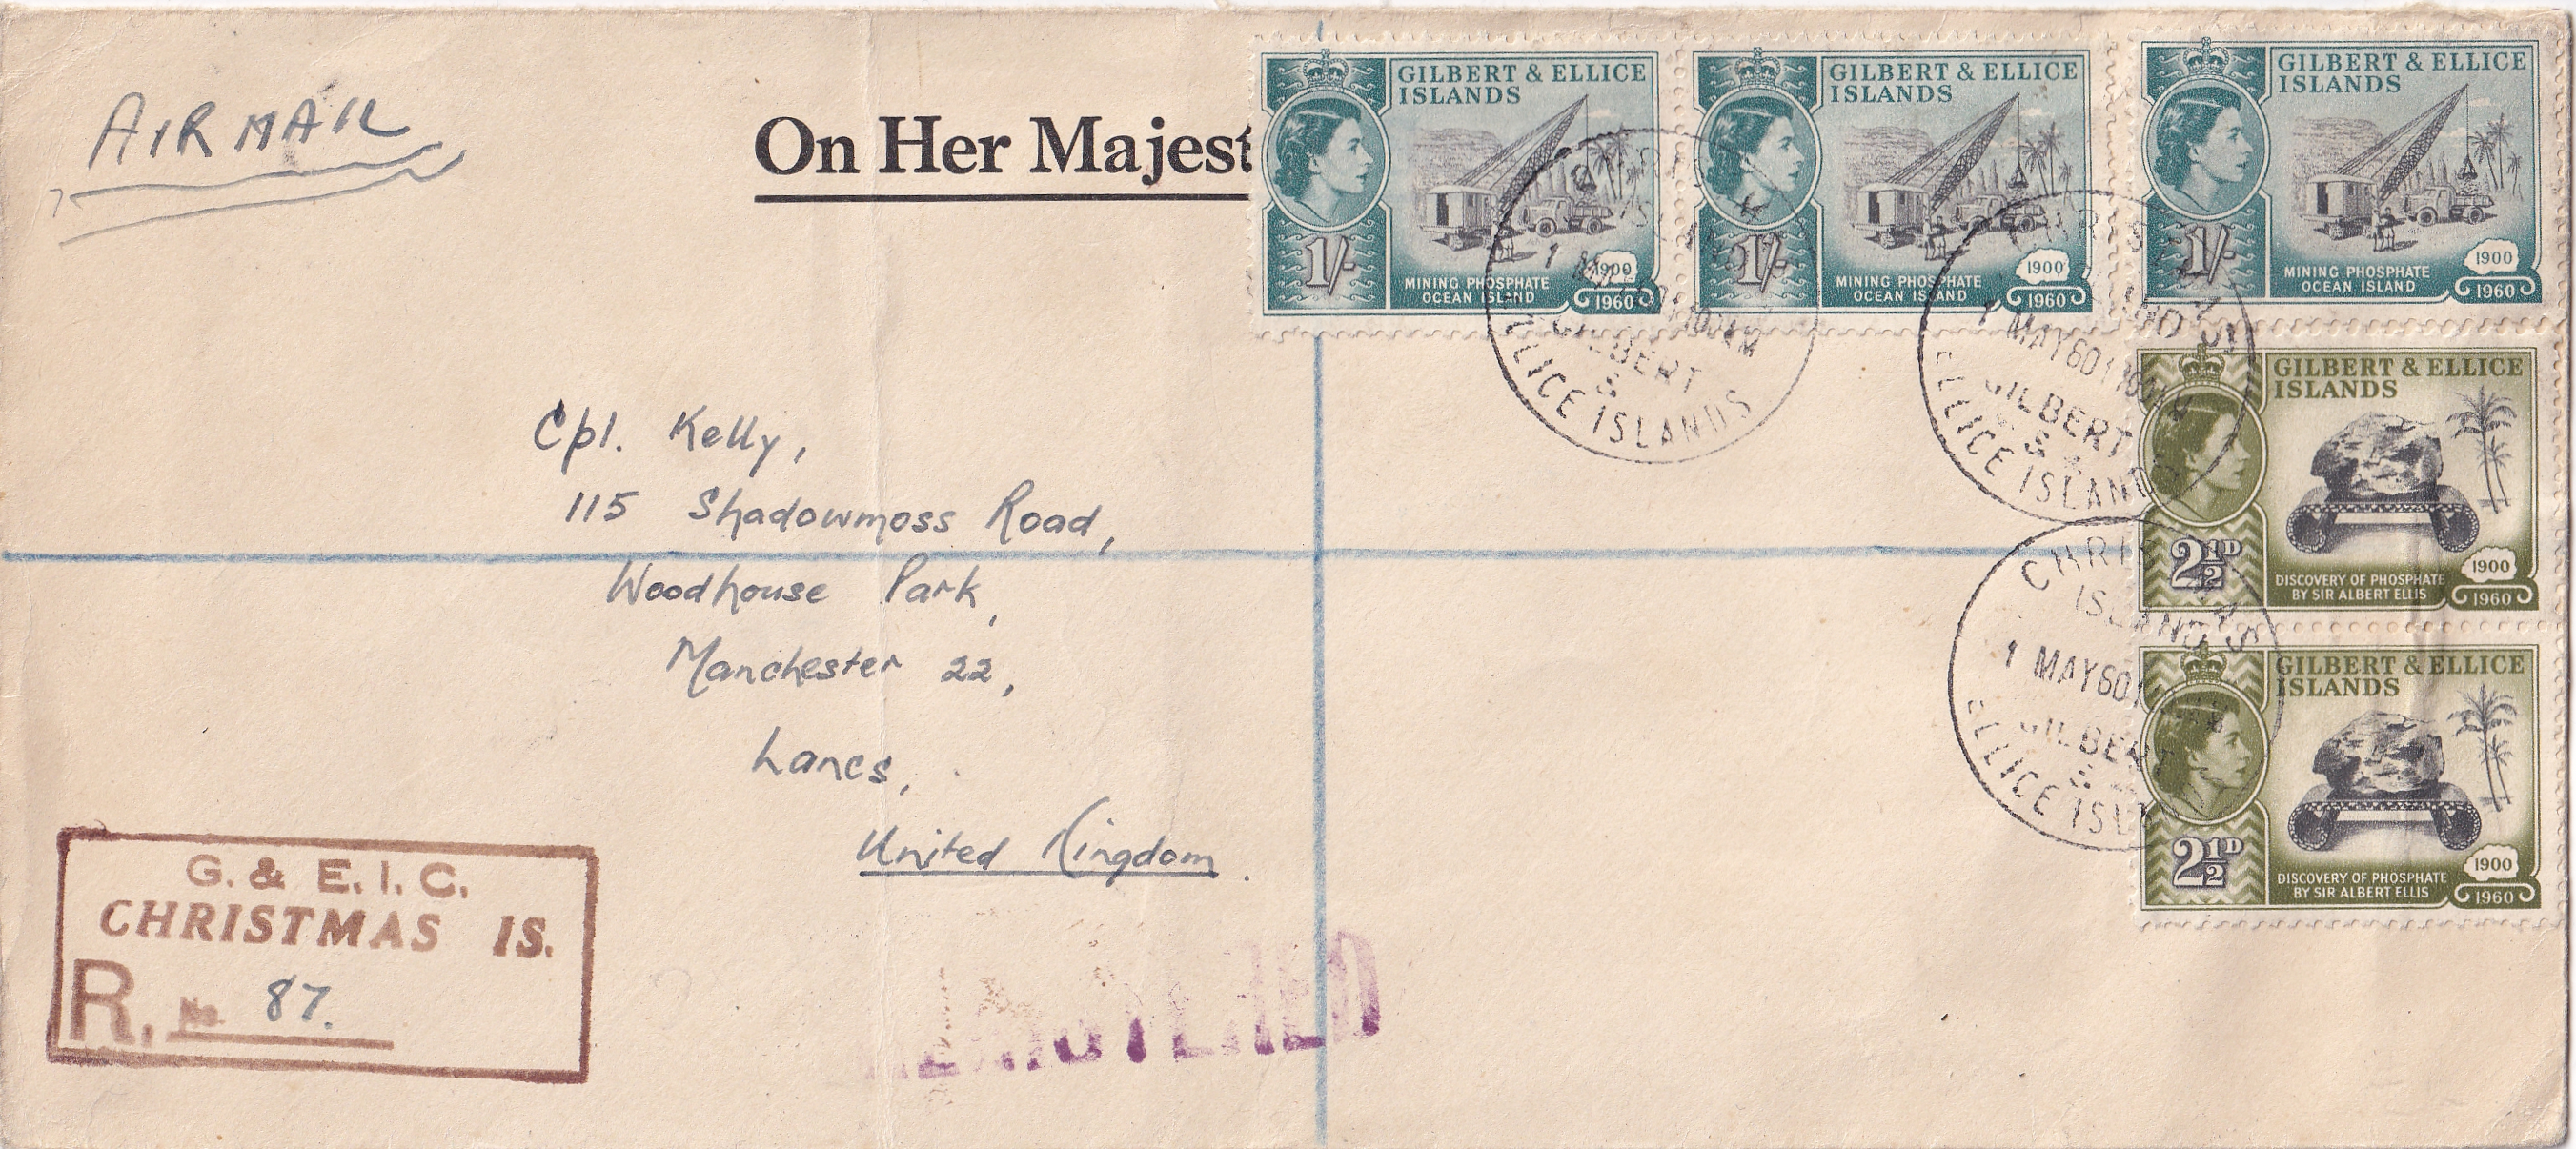 AIR MAIL
On Her Majest
GILBERT & ELLICE
ISLANDS
1/-
MINING PHOSPHATE
OCEAN ISLAND
1900
1960
GILBERT & ELLICE
ISLANDS
1/-
MINING PHOSPHATE
OCEAN ISLAND
1900
1960
GILBERT & ELLICE
ISLANDS
1/-
MINING PHOSPHATE
OCEAN ISLAND
1900
1960
GILBERT
&
ELLICE ISLANDS
1 MAY 60
GILBERT
&
ELLICE ISLANDS
GILBERT & ELLICE
ISLANDS
2½D
DISCOVERY OF PHOSPHATE
BY SIR ALBERT ELLIS
1900
1960
CHRISTMAS
ISLAND
1 MAY 60
GILBERT
&
ELLICE ISL
GILBERT & ELLICE
ISLANDS
2½D
DISCOVERY OF PHOSPHATE
BY SIR ALBERT ELLIS
1900
1960
Cpl. Kelly,
115 Shadowmoss Road,
Woodhouse Park,
Manchester 22,
Lancs,
United Kingdom.
G. & E. I. C.
CHRISTMAS IS.
R. No 87.